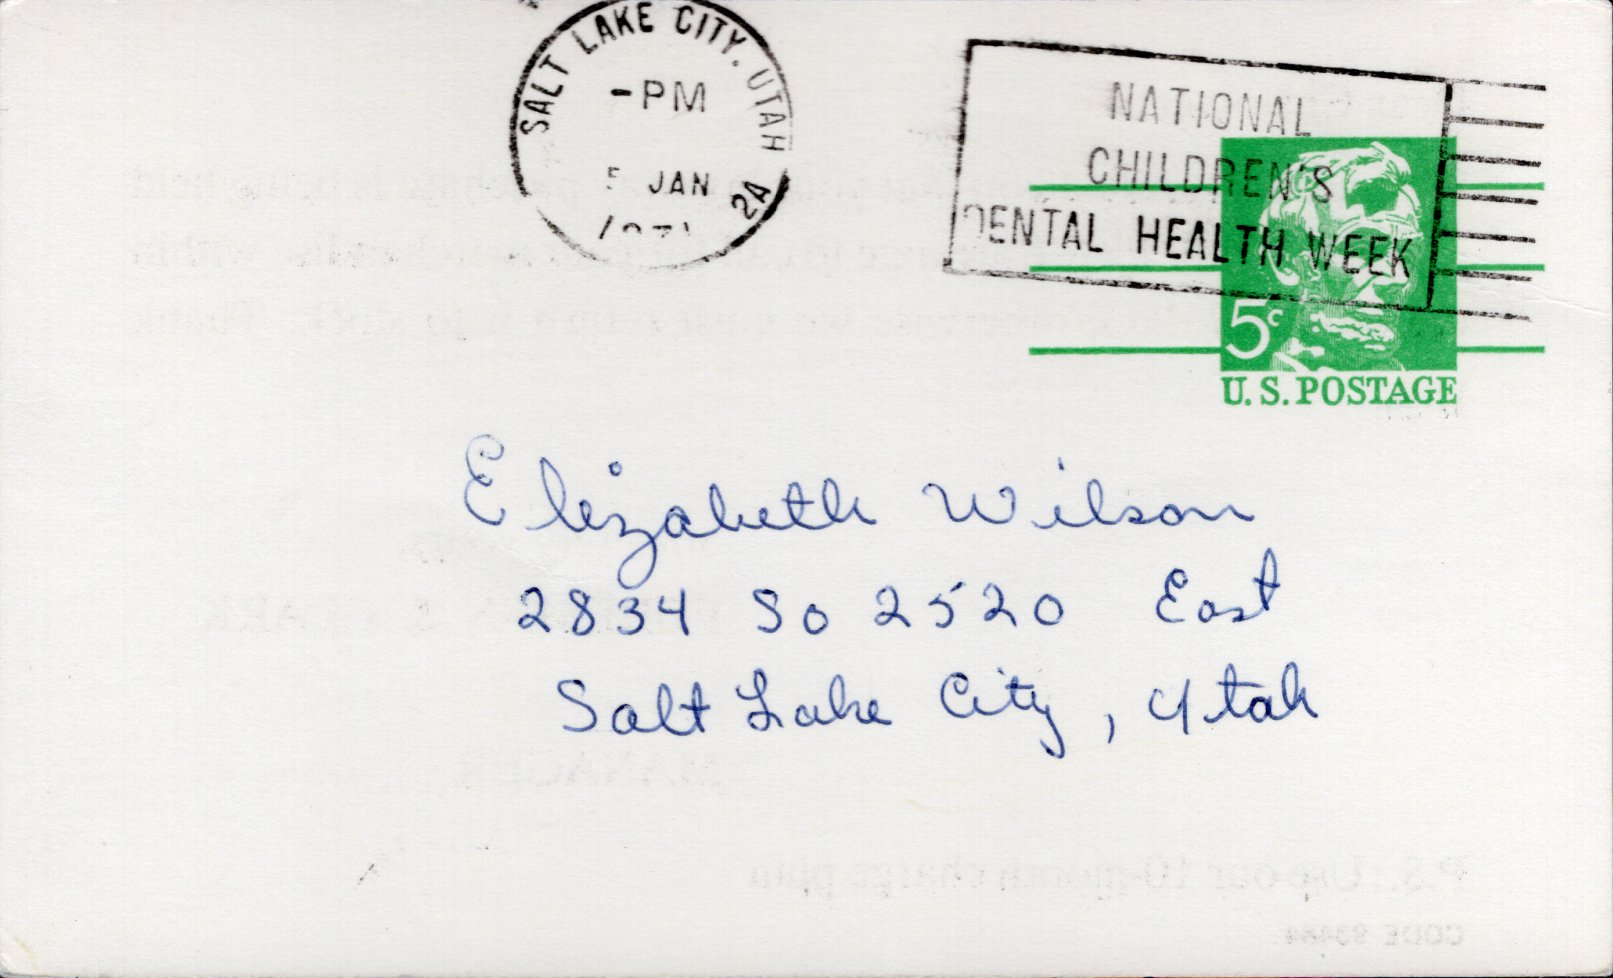 SALT LAKE CITY, UTAH 24
-PM
5 JAN
NATIONAL
CHILDREN'S
DENTAL HEALTH WEEK
5c
U.S. POSTAGE
Elizabeth Wilson
2834 So 2520 East
Salt Lake City, Utah